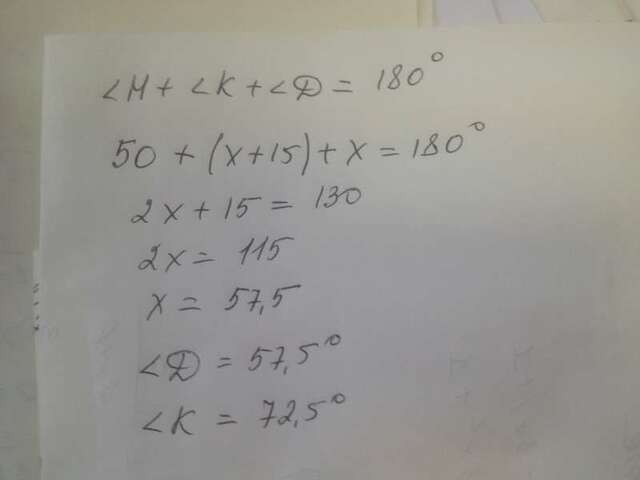 <M + <K + <D = 180°
50 + (x+15) + x = 180°
2x + 15 = 130
2x = 115
x = 57,5
<D = 57,5°
<K = 72,5°